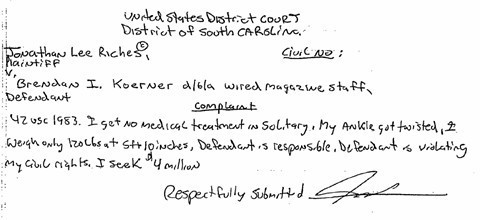 United States District Court
District of South Carolina
Jonathan Lee Riches©, Civil No:
Plaintiff
v.
Brendan I. Koerner d/b/a wired magazine staff,
Defendant
Complaint
42 USC 1983. I get no medical treatment in Solitary, My Ankle got twisted, I
weigh only 120lbs at 5ft 10 inches, Defendant is responsible. Defendant is violating
my civil rights. I seek $4 million
Respectfully Submitted